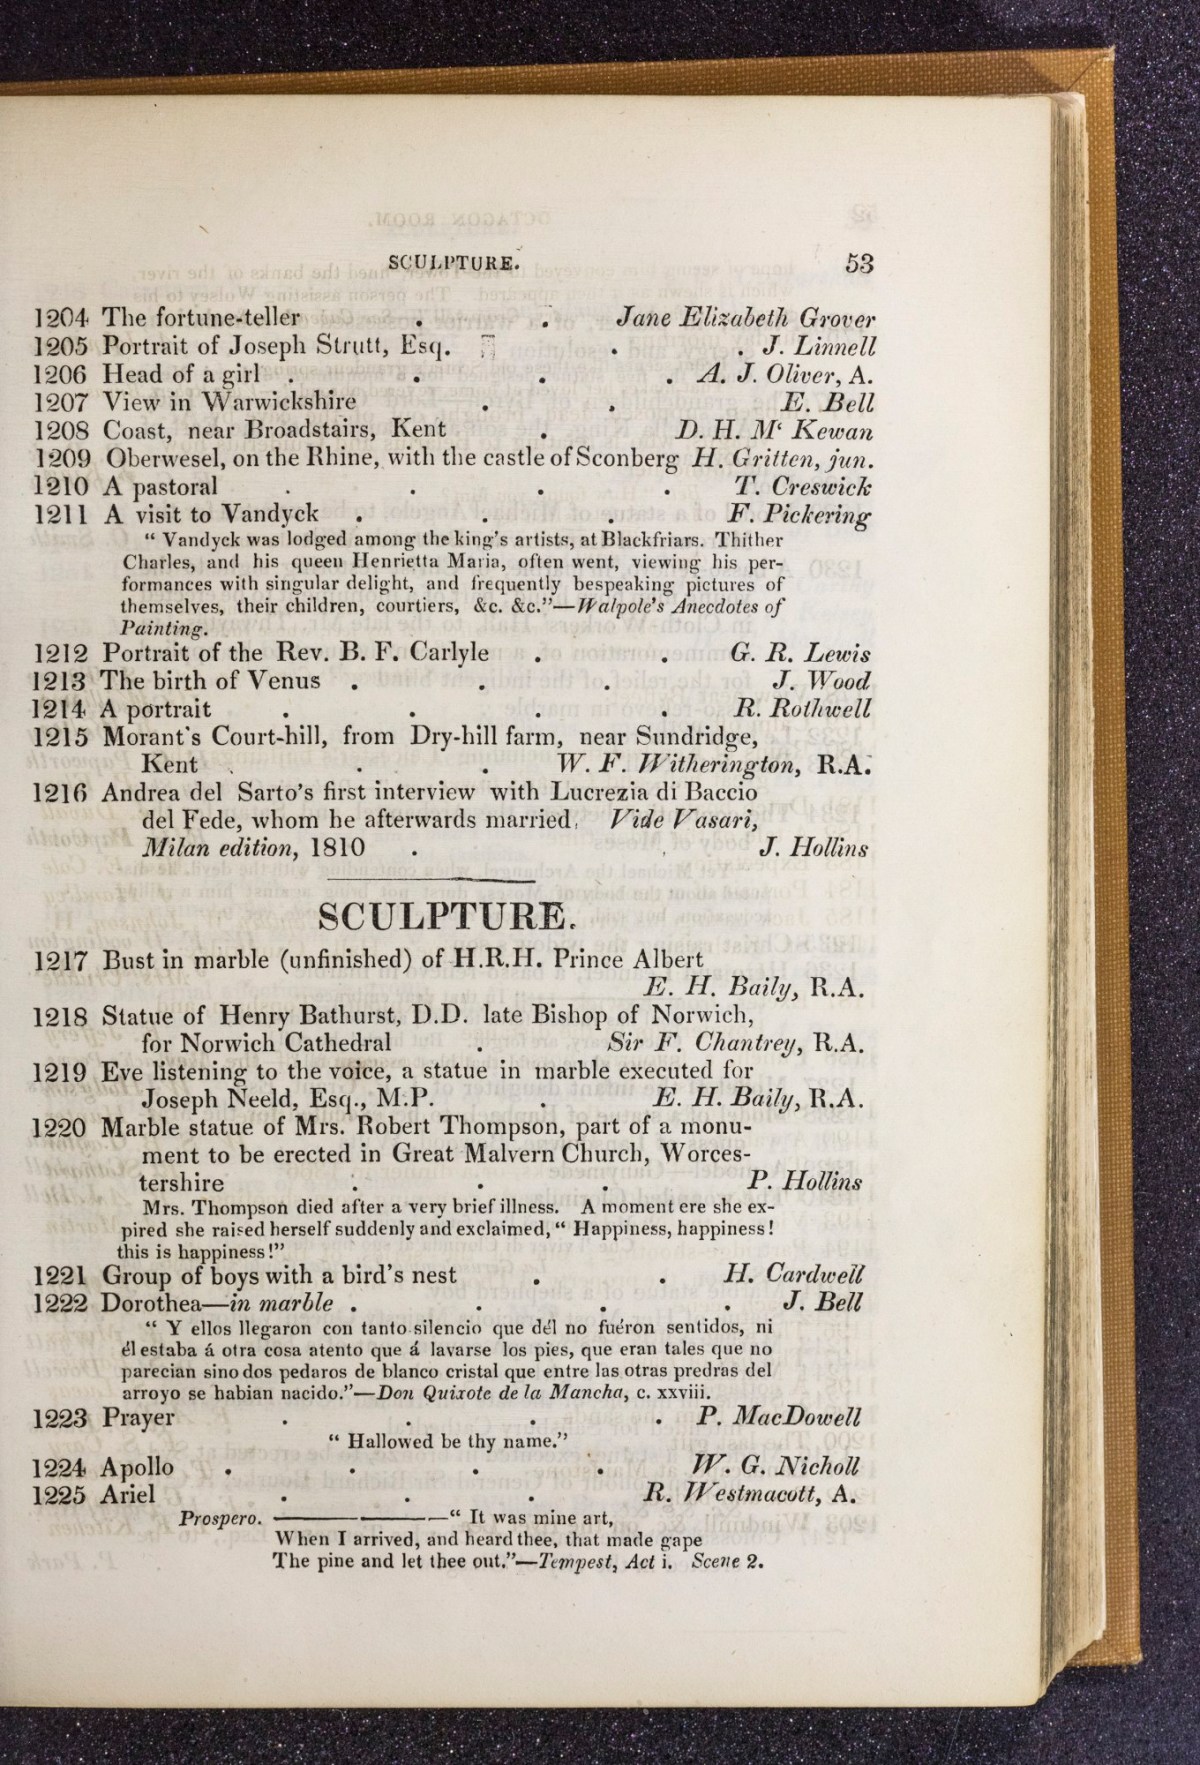 SCULPTURE. 53
1204 The fortune-teller . . Jane Elizabeth Grover
1205 Portrait of Joseph Strutt, Esq. . . J. Linnell
1206 Head of a girl . . . . A. J. Oliver, A.
1207 View in Warwickshire . . E. Bell
1208 Coast, near Broadstairs, Kent . D. H. M‘ Kewan
1209 Oberwesel, on the Rhine, with the castle of Sconberg H. Gritten, jun.
1210 A pastoral . . . . T. Creswick
1211 A visit to Vandyck . . . F. Pickering
“ Vandyck was lodged among the king's artists, at Blackfriars. Thither
Charles, and his queen Henrietta Maria, often went, viewing his per-
formances with singular delight, and frequently bespeaking pictures of
themselves, their children, courtiers, &c. &c.”—Walpole's Anecdotes of
Painting.
1212 Portrait of the Rev. B. F. Carlyle . . G. R. Lewis
1213 The birth of Venus . . . J. Wood
1214 A portrait . . . . R. Rothwell
1215 Morant's Court-hill, from Dry-hill farm, near Sundridge,
Kent . . . W. F. Witherington, R.A.
1216 Andrea del Sarto's first interview with Lucrezia di Baccio
del Fede, whom he afterwards married, Vide Vasari,
Milan edition, 1810 . . J. Hollins
SCULPTURE.
1217 Bust in marble (unfinished) of H.R.H. Prince Albert
E. H. Baily, R.A.
1218 Statue of Henry Bathurst, D.D. late Bishop of Norwich,
for Norwich Cathedral . Sir F. Chantrey, R.A.
1219 Eve listening to the voice, a statue in marble executed for
Joseph Neeld, Esq., M.P. . E. H. Baily, R.A.
1220 Marble statue of Mrs. Robert Thompson, part of a monu-
ment to be erected in Great Malvern Church, Worces-
tershire . . . P. Hollins
Mrs. Thompson died after a very brief illness. A moment ere she ex-
pired she raised herself suddenly and exclaimed, “ Happiness, happiness!
this is happiness!”
1221 Group of boys with a bird's nest . . H. Cardwell
1222 Dorothea—in marble . . . . J. Bell
“ Y ellos llegaron con tanto silencio que dél no fuéron sentidos, ni
él estaba á otra cosa atento que á lavarse los pies, que eran tales que no
parecian sino dos pedaros de blanco cristal que entre las otras predras del
arroyo se habian nacido.”—Don Quixote de la Mancha, c. xxviii.
1223 Prayer . . . . P. MacDowell
“ Hallowed be thy name.”
1224 Apollo . . . . W. G. Nicholl
1225 Ariel . . . R. Westmacott, A.
Prospero. ———“ It was mine art,
When I arrived, and heard thee, that made gape
The pine and let thee out.”—Tempest, Act i. Scene 2.